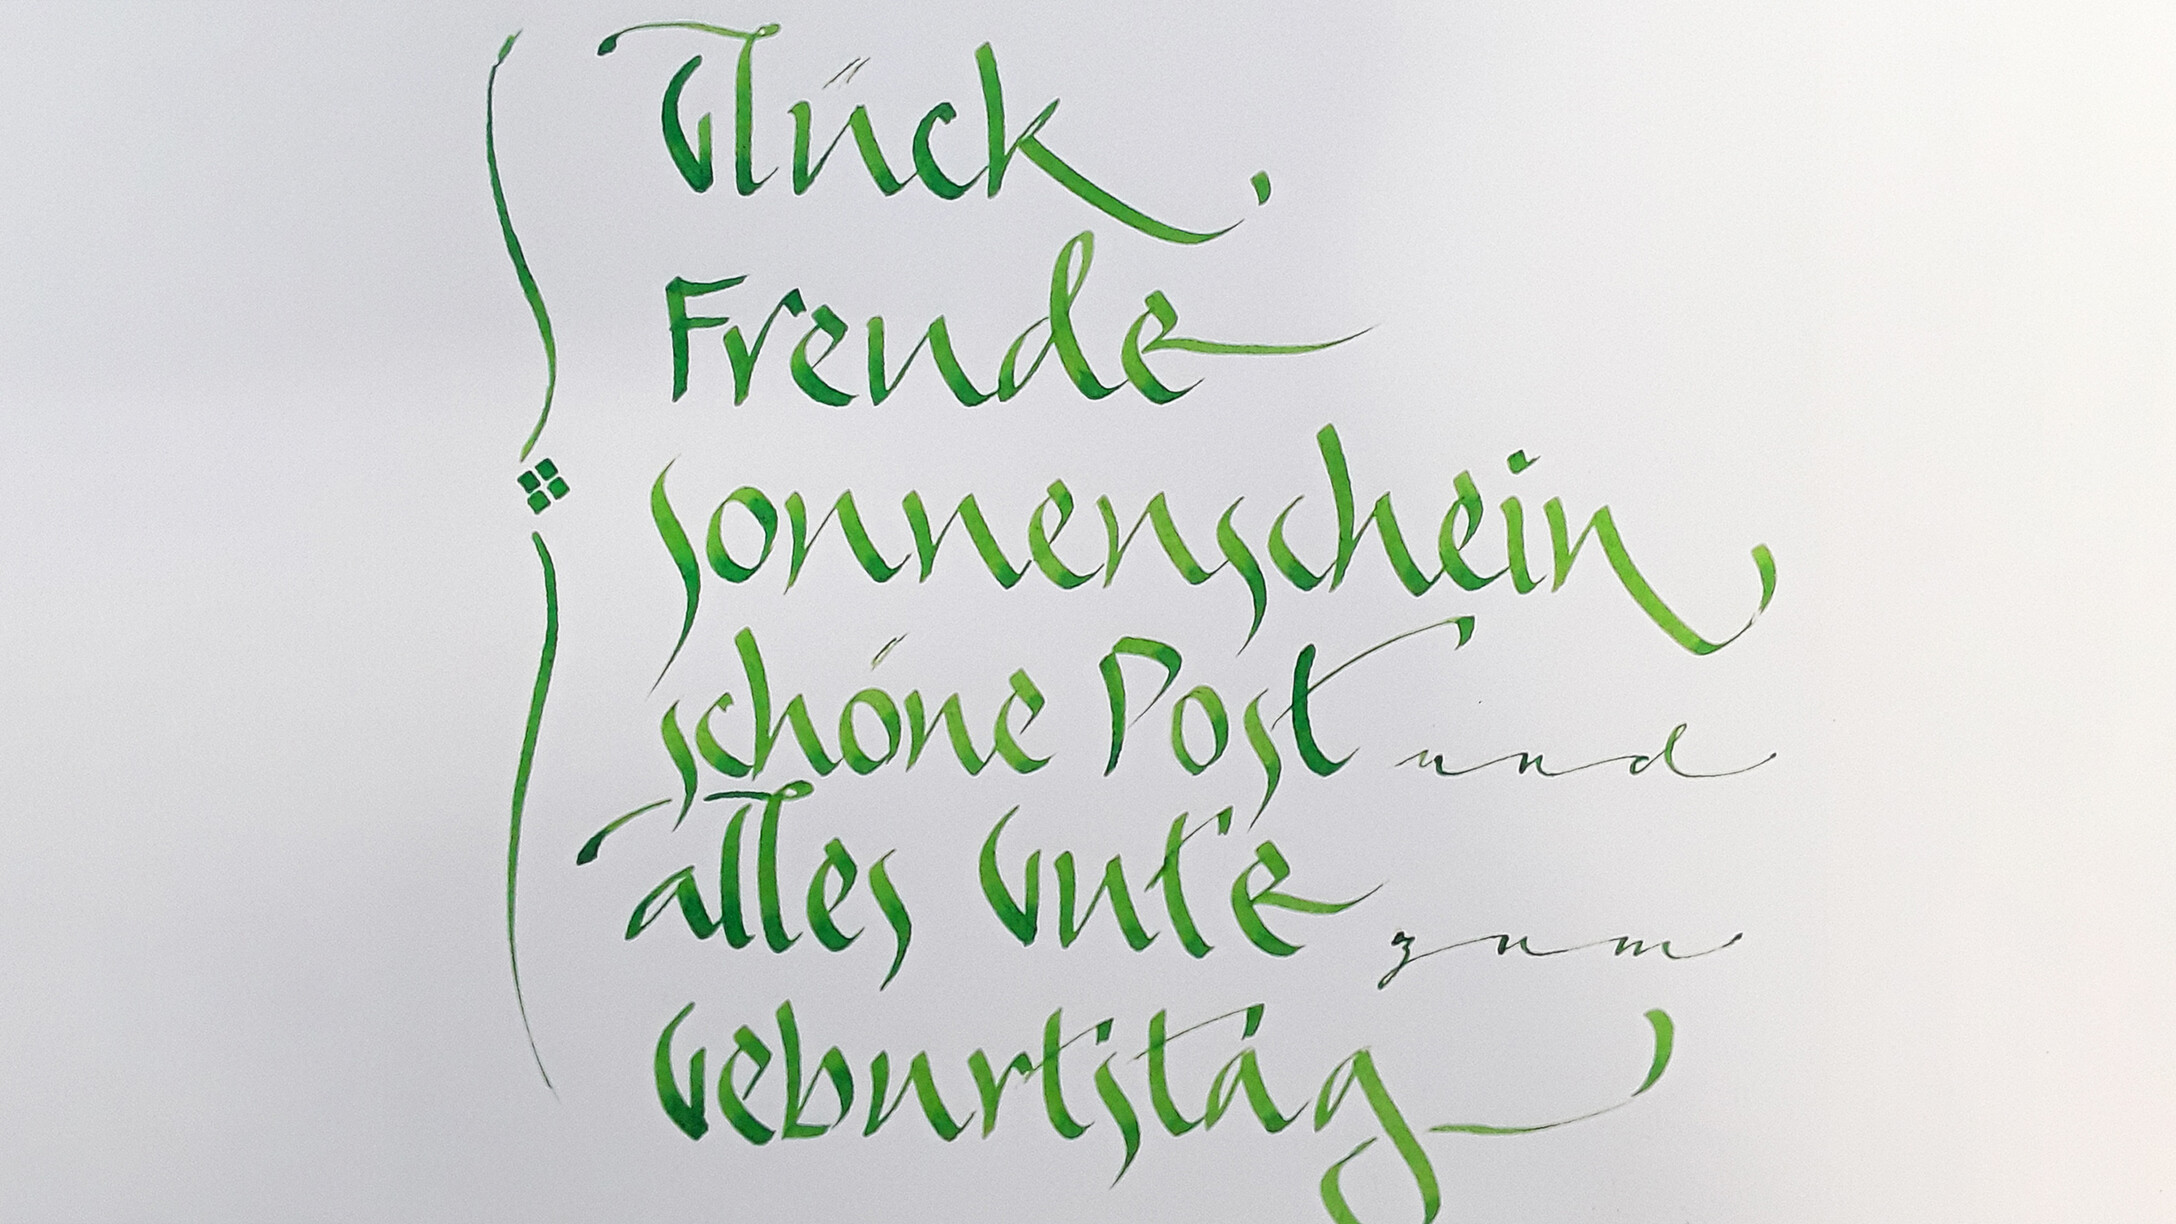 Glück
Freude
Sonnenschein
schöne Post und
alles Gute zum
Geburtstag